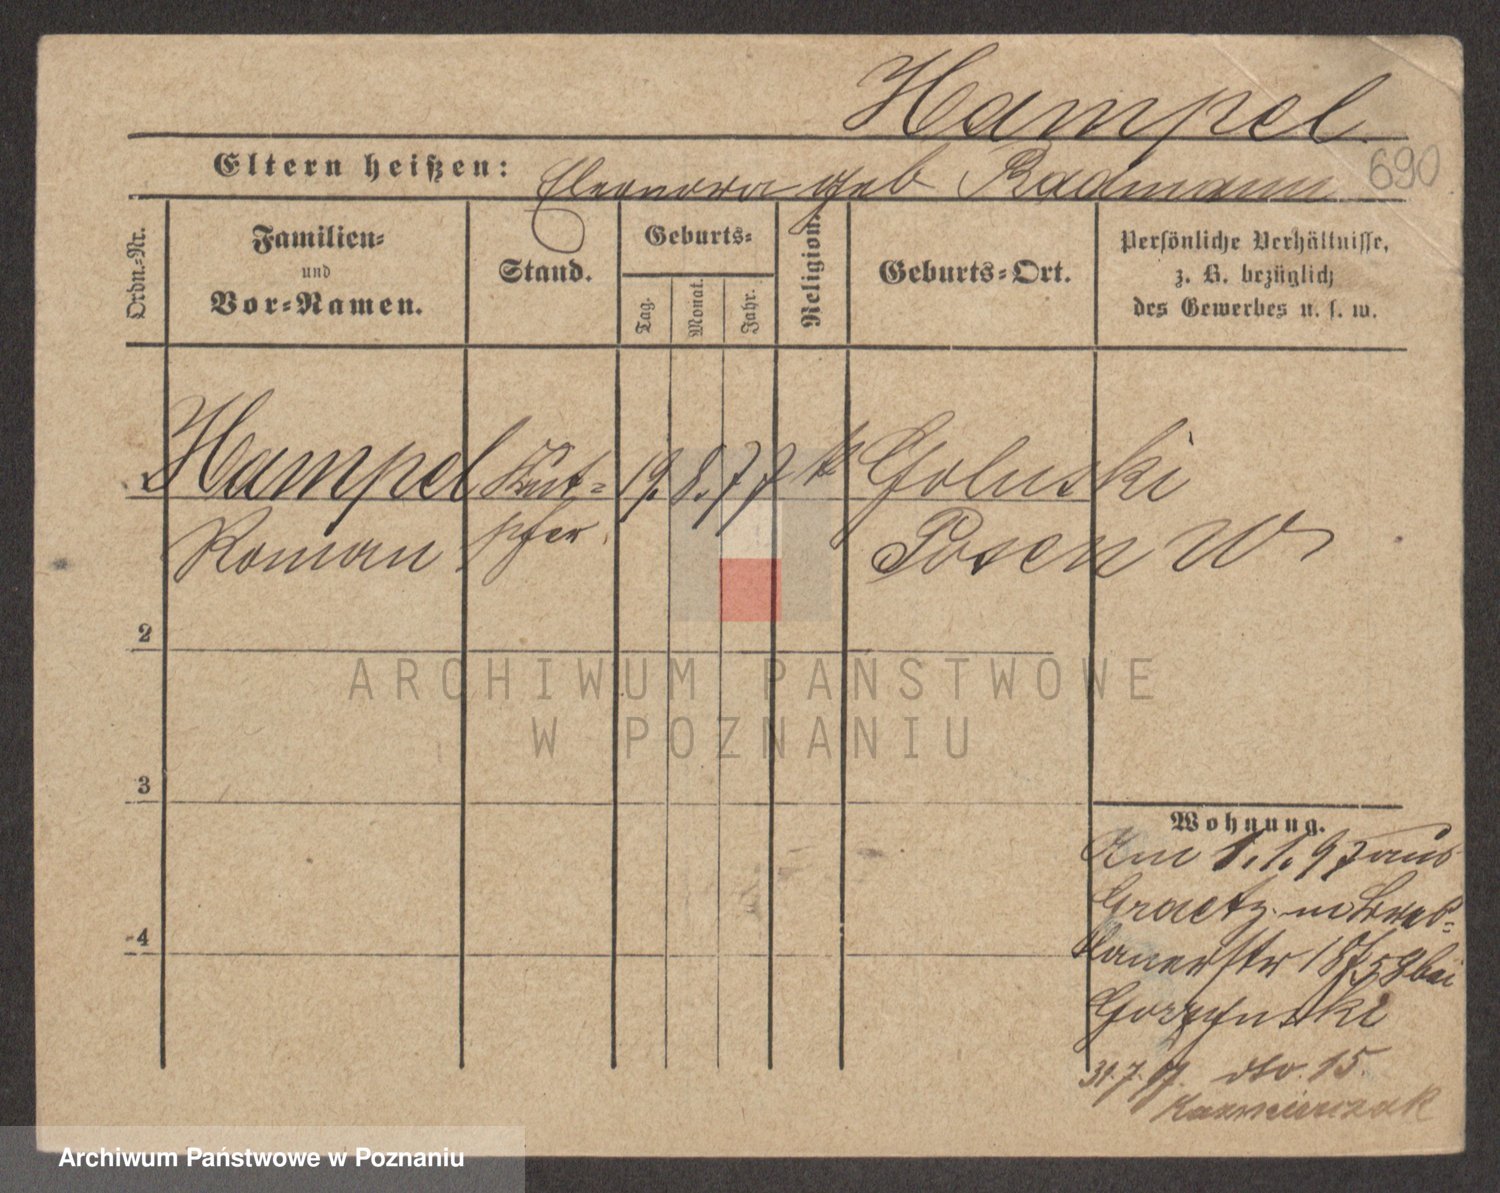 Hampel
690
Eltern heißen: Eleonora geb Radmann
Ordn.-Nr.
Familien-
und
Vor-Namen.
Stand.
Geburts-
Tag.
Monat.
Jahr.
Religion.
Geburts-Ort.
Persönliche Verhältnisse,
z. B. bezüglich
des Gewerbes u. s. w.
Hampel 19. 8. 77 k Goluski
Roman Posen W
2
3
4
Wohnung.
Am 1.1.97 aus
Graetz n
bei
Gorzynski
31.7.97. dto. 15.
Kazmierczak
ARCHIWUM PAŃSTWOWE
W POZNANIU
Archiwum Państwowe w Poznaniu